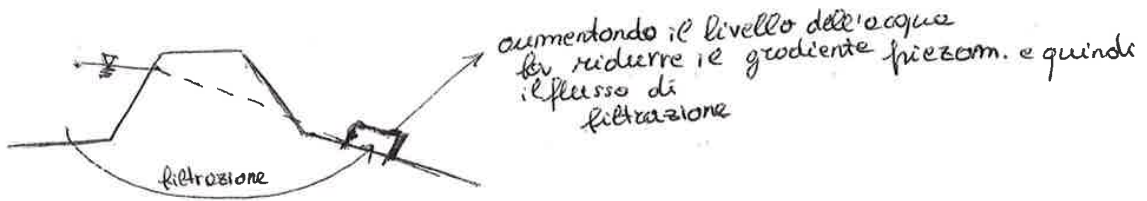 aumentando il livello dell'acqua
per ridurre il gradiente piezom. e quindi
il flusso di
filtrazione
filtrazione